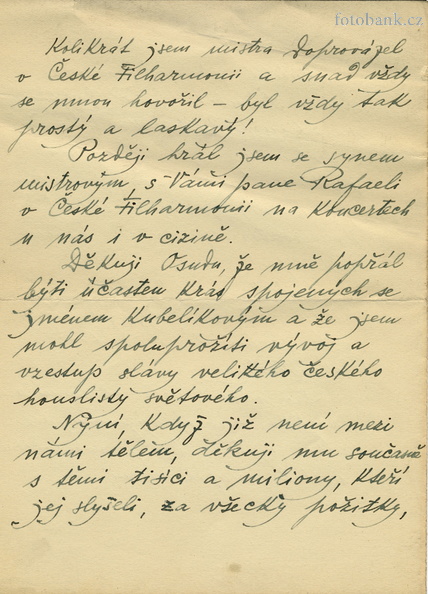 fotobank.cz
Kolikrát jsem mistra doprovázel
v České Filharmonii a snad vždy
se mnou hovořil – byl vždy tak
prostý a laskavý!
Později hrál jsem se synem
mistrovým, s Vámi pane Rafaeli
v České Filharmonii na koncertech
u nás i v cizině.
Děkuji Osudu, že mně popřál
býti účasten krás spojených se
jménem Kubelíkovým a že jsem
mohl spoluprožíti vývoj a
vzestup slávy velikého českého
houslisty světového.
Nyní, když již není mezi
námi tělem, děkuji mu současně
s těmi tisíci a miliony, kteří
jej slyšeli, za všecky požitky,